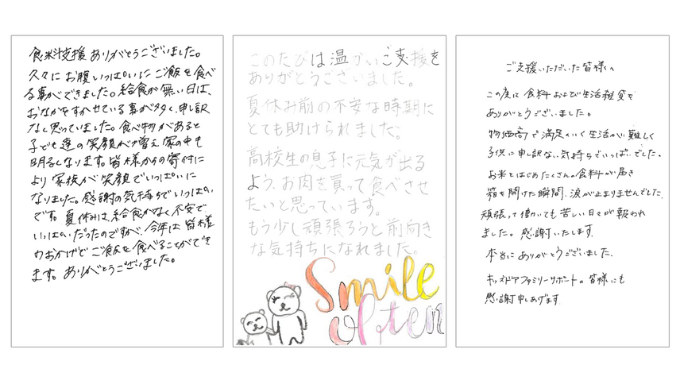 食料支援 ありがとうございました。
久々に お腹いっぱいに ご飯を食べ
る事ができました。給食が無い日は、
おなかをすかせている事が多く、申し訳
なく思っていました。食べ物があると
子ども達の笑顔が増え 家の中も
明るくなります。皆様からの寄付に
より 家族が笑顔でいっぱいに
なりました。感謝の気持ちでいっぱい
です。夏休みは、給食がなく不安で
いっぱいだったのですが、今年は 皆様
のおかげで ご飯を食べることができ
ます。ありがとうございました。
このたびは温かいご支援を
ありがとうございました。
夏休み前の不安な時期に
とても助けられました。
高校生の息子に元気が出る
よう、お肉を買って食べさせ
たいと思っています。
もう少し頑張ろうと前向き
な気持ちになれました。
Smile
often
ご支援いただいた皆様へ
この度は 食料および生活雑貨を
ありがとうございました。
物価高で満足のいく生活が難しく
子供に申し訳ない気持ちでいっぱいでした。
お米をはじめたくさんの食料が届き
箱を開けた瞬間、涙が止まりませんでした。
頑張って働いても苦しい日々が報われ
ました。感謝いたします。
本当にありがとうございました。
キッズドアファミリーサポートの皆様にも
感謝申しあげます。